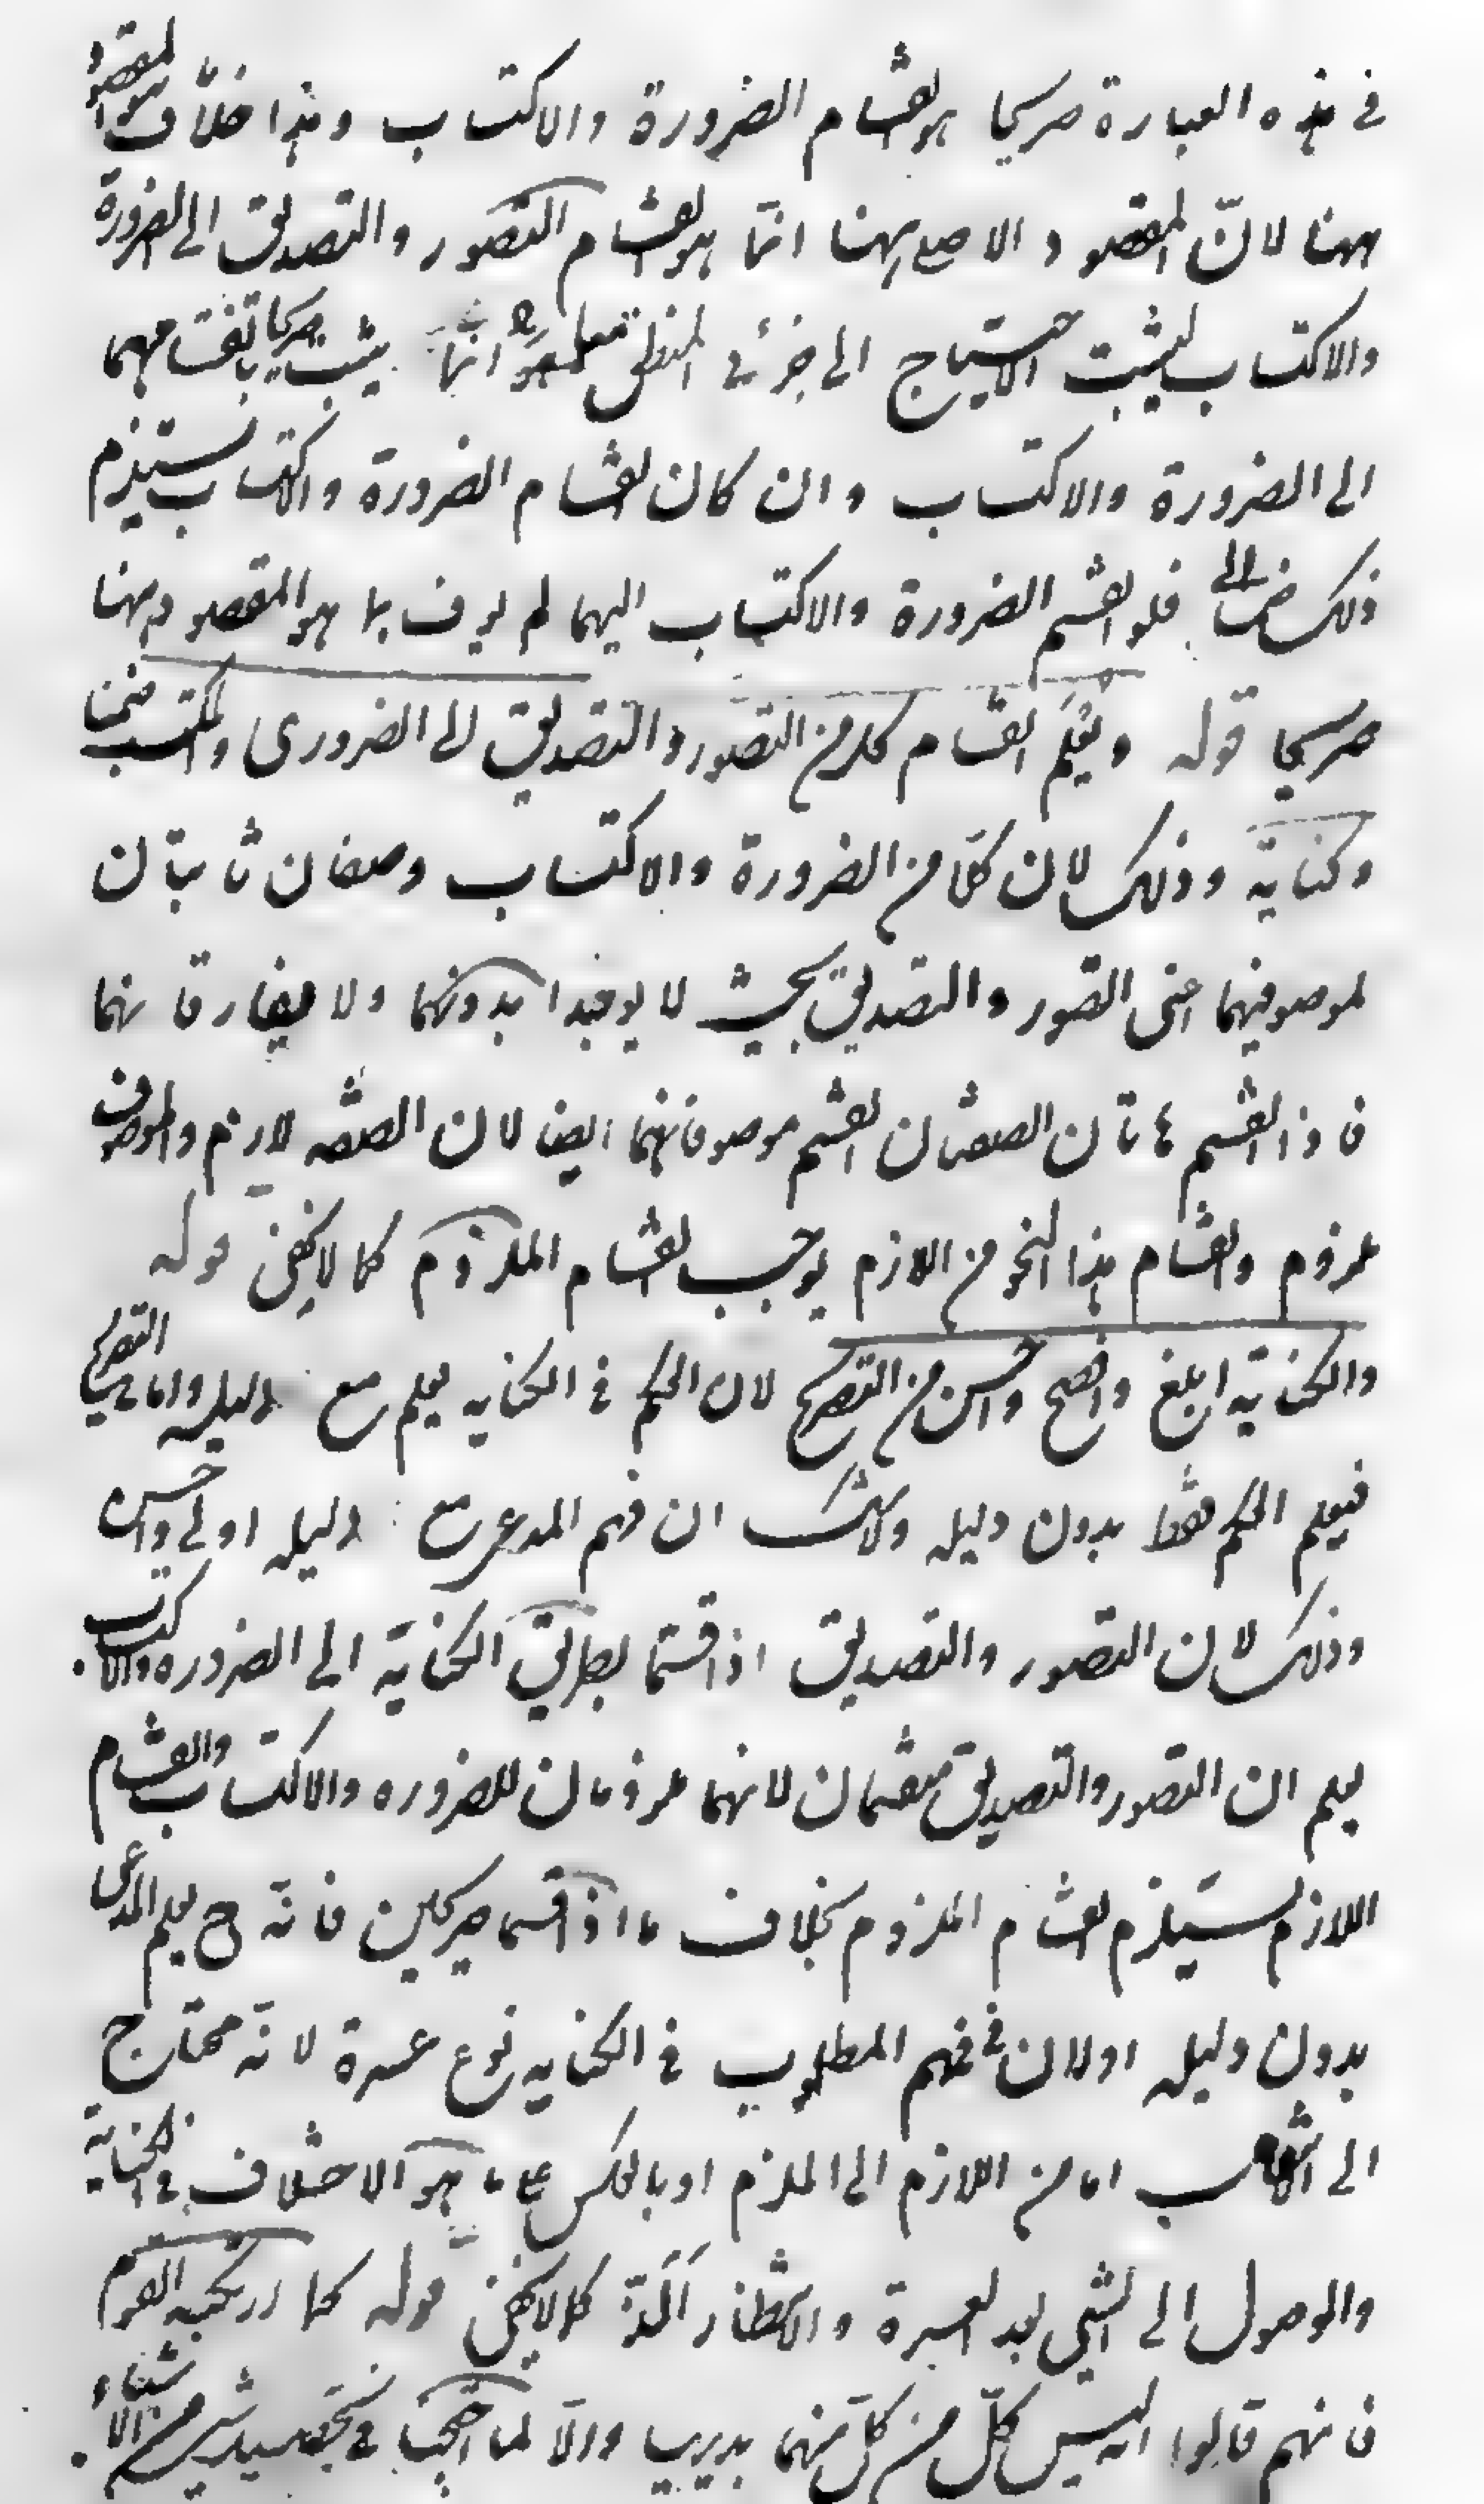 في هذه العبارة صريحا هو انقسام الضرورة والاكتساب وهذا خلاف ما هو المقصود
ههنا لانّ المقصود الاصلي ههنا انّما هو انقسام التصور والتصديق الى الضرورة
والاكتساب ليثبت الاحتياج الى جزئي المنطق انّما يثبت صريحا بانقسامهما
الى الضرورة والاكتساب وان كان انقسام الضرورة والاكتساب يستلزم
ذلك فلو انقسم الضرورة والاكتساب اليهما لم يوف بما هو المقصود ههنا
صريحا قوله ويُعلَم انقسام كل من التصور والتصديق الى الضروري والمكتسب ضمنا
وكناية وذلك لان كلّا من الضرورة والاكتساب وصفان ثابتان
لموصوفيهما اعنى التصور والتصديق بحيث لا يوجدا بدونهما ولا يفارقانهما
فاذا انقسم هاتان الصفتان انقسم موصوفاتهما ايضا لان الصفة لازم والموصوف
ملزوم وانقسام هذا النحو من اللازم يوجب انقسام الملزوم كما لا يخفى قوله
والكناية ابلغ وافصح واحسن من التصريح لان الحكم في الكناية يعلم مع دليله واما في التصريح
فيعلم الحكم فقط بدون دليله ولا شك ان فهم المدعى مع دليله اولى واحسن
وذلك لان التصور والتصديق اذا قسّما بطريق الكناية الى الضروره والاكتساب
يعلم ان التصور والتصديق منقسمان لانهما ملزومان للضروره والاكتساب وانقسام
اللازم يستلزم انقسام الملزوم بخلاف ما اذا قسما صريحين فانّه ح يعلم المدعى
بدون دليله اولان في فهم المطلوب في الكنايه نوع عسرة لانّه محتاج
الى امّا من اللازم الى الملزم او بالعكس على ما هو الاختلاف في الكناية
والوصول الى الشيء بعد العسرة والانتظار الَذّ كما لا يخفى قوله كما ارتكبه القوم
فانهم قالوا ليس كلّ من كلّ منهما بديهيا والّا لما احتجنا في تحصيل شيء من الاشياء